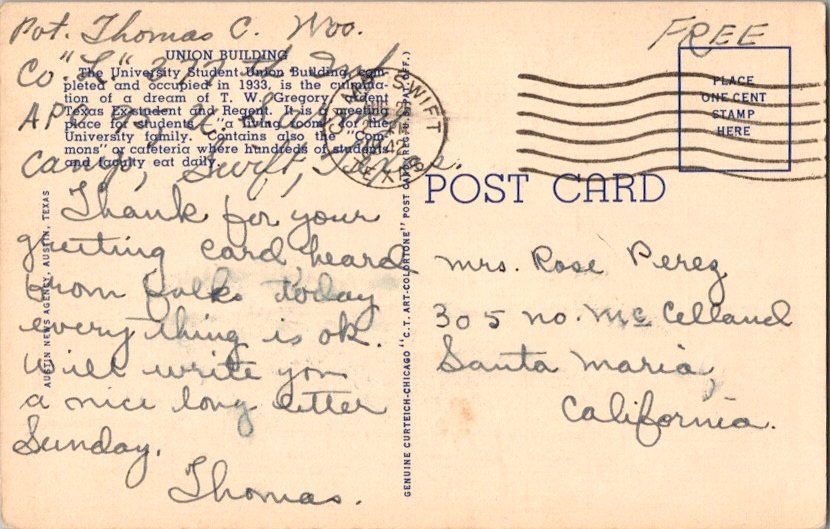 Pvt. Thomas C. Woo.
Co "L" 377th Inf.
APO 95, U.S. Army
Camp, Swift, Texas.
Thank for your
greeting card heard
from folks today
everything is ok.
Will write you
a nice long letter
Sunday.
Thomas.
UNION BUILDING
The University Student Union Building, com-
pleted and occupied in 1933, is the culmina-
tion of a dream of T. W. Gregory, ardent
Texas Ex-student and Regent. It is a meeting
place for students, "a living room" for the
University family. Contains also the "Com-
mons" or cafeteria where hundreds of students
and faculty eat daily.
AUSTIN NEWS AGENCY, AUSTIN, TEXAS
GENUINE CURTEICH-CHICAGO "C.T. ART-COLORTONE" POST CARD (REG. U.S. PAT. OFF.)
CAMP SWIFT
TEXAS
FREE
PLACE
ONE CENT
STAMP
HERE
POST CARD
Mrs. Rose Perez
305 no. Mc Celland
Santa Maria,
California.